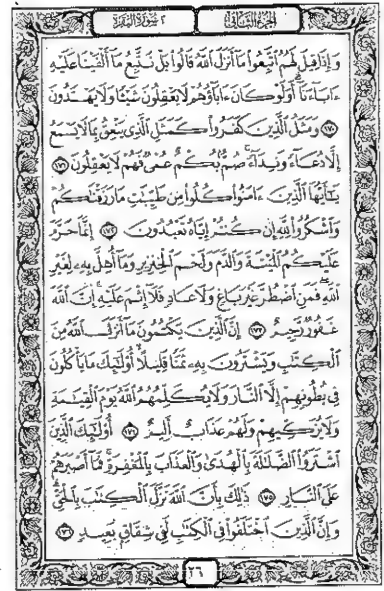 الجزء الثاني ٢ سورة البقرة
وَإِذَا قِيلَ لَهُمُ اتَّبِعُوا مَا أَنزَلَ اللَّهُ قَالُوا بَلْ نَتَّبِعُ مَا أَلْفَيْنَا عَلَيْهِ
ءَابَاءَنَا أَوَلَوْ كَانَ ءَابَاؤُهُمْ لَا يَعْقِلُونَ شَيْئًا وَلَا يَهْتَدُونَ
﴿١٧٠﴾ وَمَثَلُ الَّذِينَ كَفَرُوا كَمَثَلِ الَّذِي يَنْعِقُ بِمَا لَا يَسْمَعُ
إِلَّا دُعَاءً وَنِدَاءً صُمٌّ بُكْمٌ عُمْيٌ فَهُمْ لَا يَعْقِلُونَ ﴿١٧١﴾
يَاأَيُّهَا الَّذِينَ ءَامَنُوا كُلُوا مِن طَيِّبَاتِ مَا رَزَقْنَاكُمْ
وَاشْكُرُوا لِلَّهِ إِن كُنتُمْ إِيَّاهُ تَعْبُدُونَ ﴿١٧٢﴾ إِنَّمَا حَرَّمَ
عَلَيْكُمُ الْمَيْتَةَ وَالدَّمَ وَلَحْمَ الْخِنزِيرِ وَمَا أُهِلَّ بِهِ لِغَيْرِ
اللَّهِ فَمَنِ اضْطُرَّ غَيْرَ بَاغٍ وَلَا عَادٍ فَلَا إِثْمَ عَلَيْهِ إِنَّ اللَّهَ
غَفُورٌ رَّحِيمٌ ﴿١٧٣﴾ إِنَّ الَّذِينَ يَكْتُمُونَ مَا أَنزَلَ اللَّهُ مِنَ
الْكِتَابِ وَيَشْتَرُونَ بِهِ ثَمَنًا قَلِيلًا أُولَٰئِكَ مَا يَأْكُلُونَ
فِي بُطُونِهِمْ إِلَّا النَّارَ وَلَا يُكَلِّمُهُمُ اللَّهُ يَوْمَ الْقِيَامَةِ
وَلَا يُزَكِّيهِمْ وَلَهُمْ عَذَابٌ أَلِيمٌ ﴿١٧٤﴾ أُولَٰئِكَ الَّذِينَ
اشْتَرَوُا الضَّلَالَةَ بِالْهُدَىٰ وَالْعَذَابَ بِالْمَغْفِرَةِ فَمَا أَصْبَرَهُمْ
عَلَى النَّارِ ﴿١٧٥﴾ ذَٰلِكَ بِأَنَّ اللَّهَ نَزَّلَ الْكِتَابَ بِالْحَقِّ
وَإِنَّ الَّذِينَ اخْتَلَفُوا فِي الْكِتَابِ لَفِي شِقَاقٍ بَعِيدٍ ﴿١٧٦﴾
٢٦